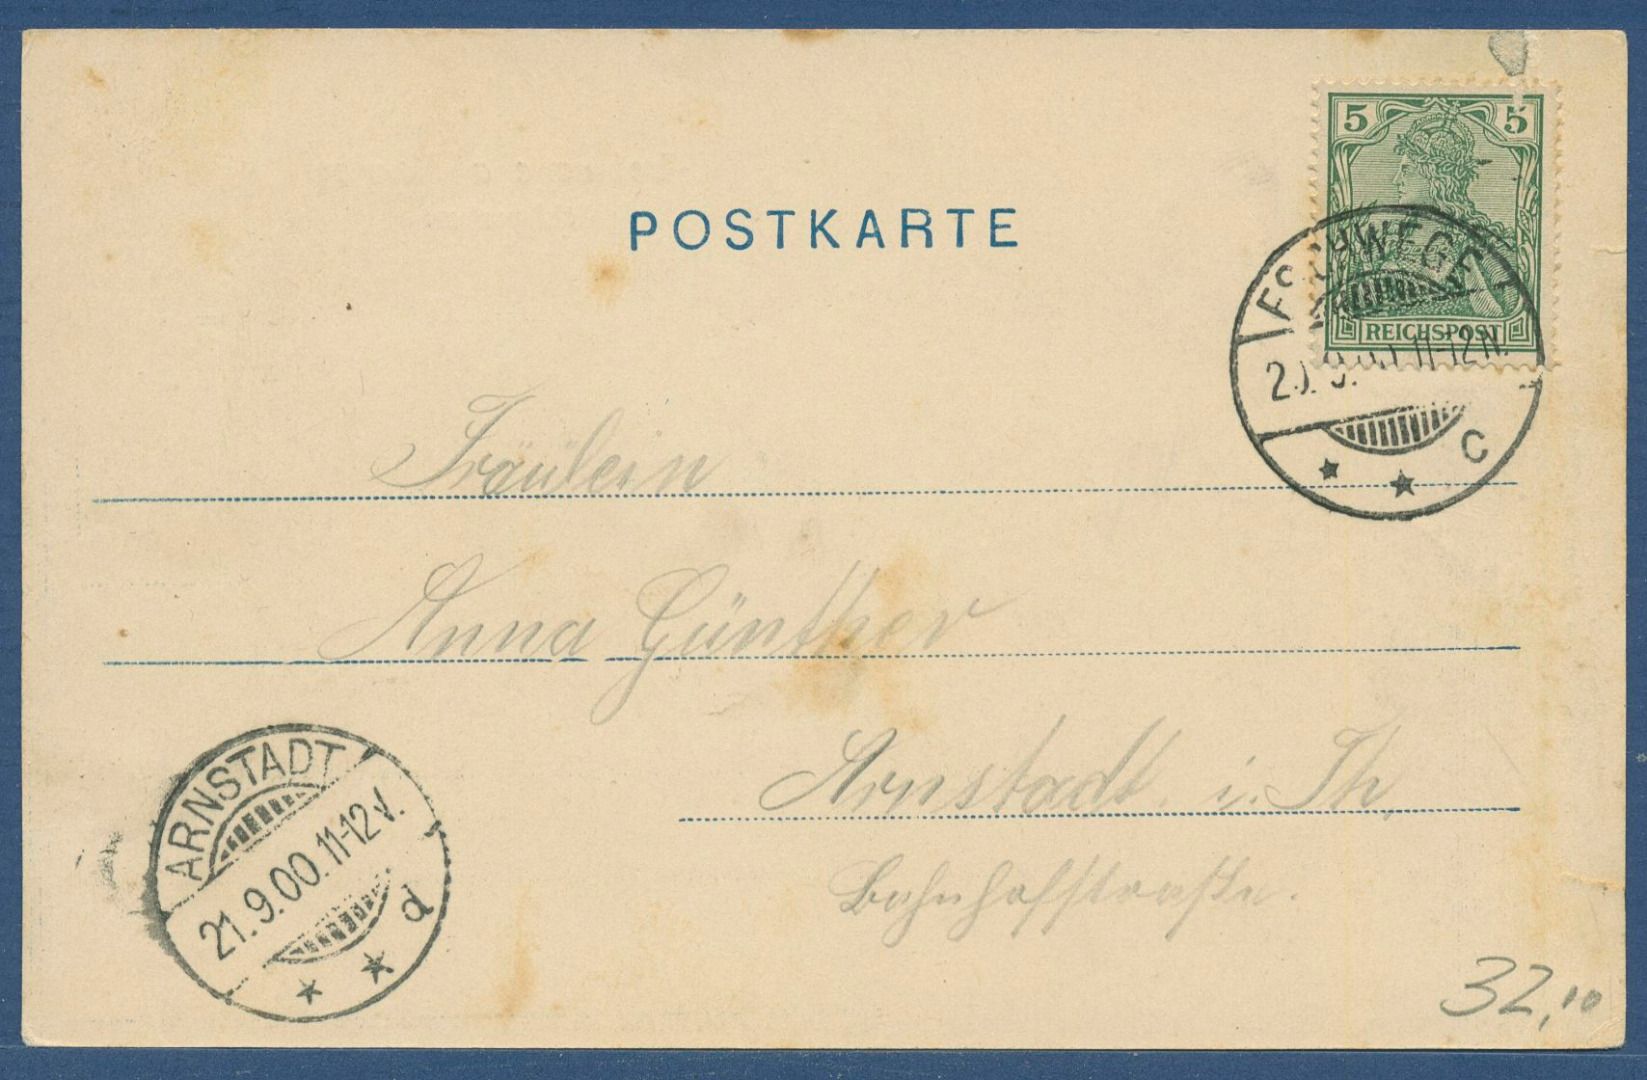 5 5
POSTKARTE
REICHSPOST
ESCHWEGE
20.9.00 11-12N.
c
Fräulein
Anna Günther
Arnstadt i. Th
Bahnhofstraße.
ARNSTADT
21.9.00.11-12V.
d
32,10